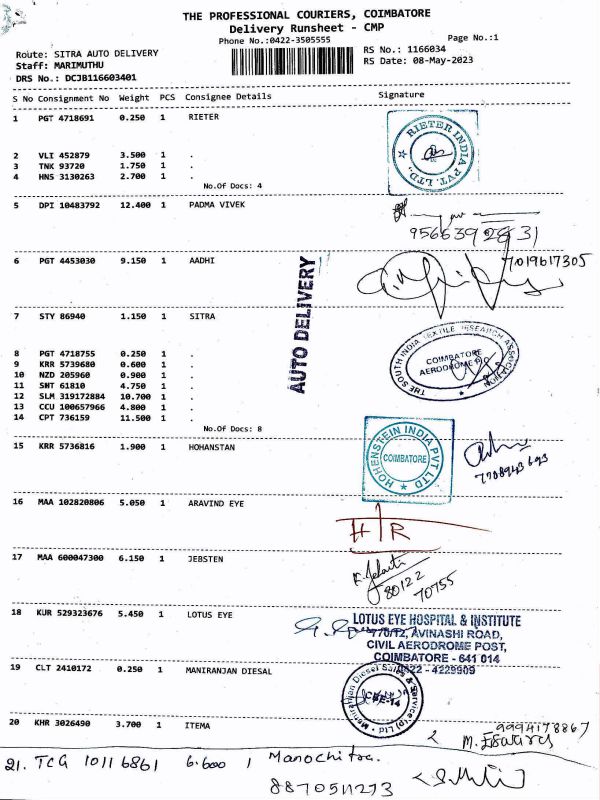 THE PROFESSIONAL COURIERS, COIMBATORE
Delivery Runsheet - CMP
Phone No.:0422-3505555
Page No.:1
Route: SITRA AUTO DELIVERY
Staff: MARIMUTHU
DRS No.: DCJB116603401
RS No.: 1166034
RS Date: 08-May-2023
S No Consignment No Weight PCS Consignee Details Signature
1 PGT 4718691 0.250 1 RIETER
RIETER INDIA PVT. LTD.
2 VLI 452879 3.500 1 .
3 TNK 93720 1.750 1 .
4 HNS 3130263 2.700 1 .
No.Of Docs: 4
5 DPI 10483792 12.400 1 PADMA VIVEK
9566392831
6 PGT 4453030 9.150 1 AADHI
7019617305
AUTO DELIVERY
7 STY 86940 1.150 1 SITRA
THE SOUTH INDIA TEXTILE RESEARCH ASSOCIATION
COIMBATORE
AERODROME P.O.
8 PGT 4718755 0.250 1 .
9 KRR 5739680 0.600 1 .
10 NZD 205960 0.900 1 .
11 SMT 61810 4.750 1 .
12 SLM 319172884 10.700 1 .
13 CCU 100657966 4.800 1 .
14 CPT 736159 11.500 1 .
No.Of Docs: 8
15 KRR 5736816 1.900 1 HOHANSTAN
HOHENSTEIN INDIA PVT LTD
COIMBATORE
7708943693
16 MAA 102820806 5.050 1 ARAVIND EYE
HR
17 MAA 600047300 6.150 1 JEBSTEN
80122
70755
18 KUR 529323676 5.450 1 LOTUS EYE
LOTUS EYE HOSPITAL & INSTITUTE
770/12, AVINASHI ROAD,
CIVIL AERODROME POST,
COIMBATORE - 641 014
0422 - 4229909
19 CLT 2410172 0.250 1 MANIRANJAN DIESAL
Maniranjan Diesel Sales & Service (p) Ltd
CBE-14
20 KHR 3026490 3.700 1 ITEMA
9994178867
21. TCG 10116861 6.600 1 Manochitra.
8870511273